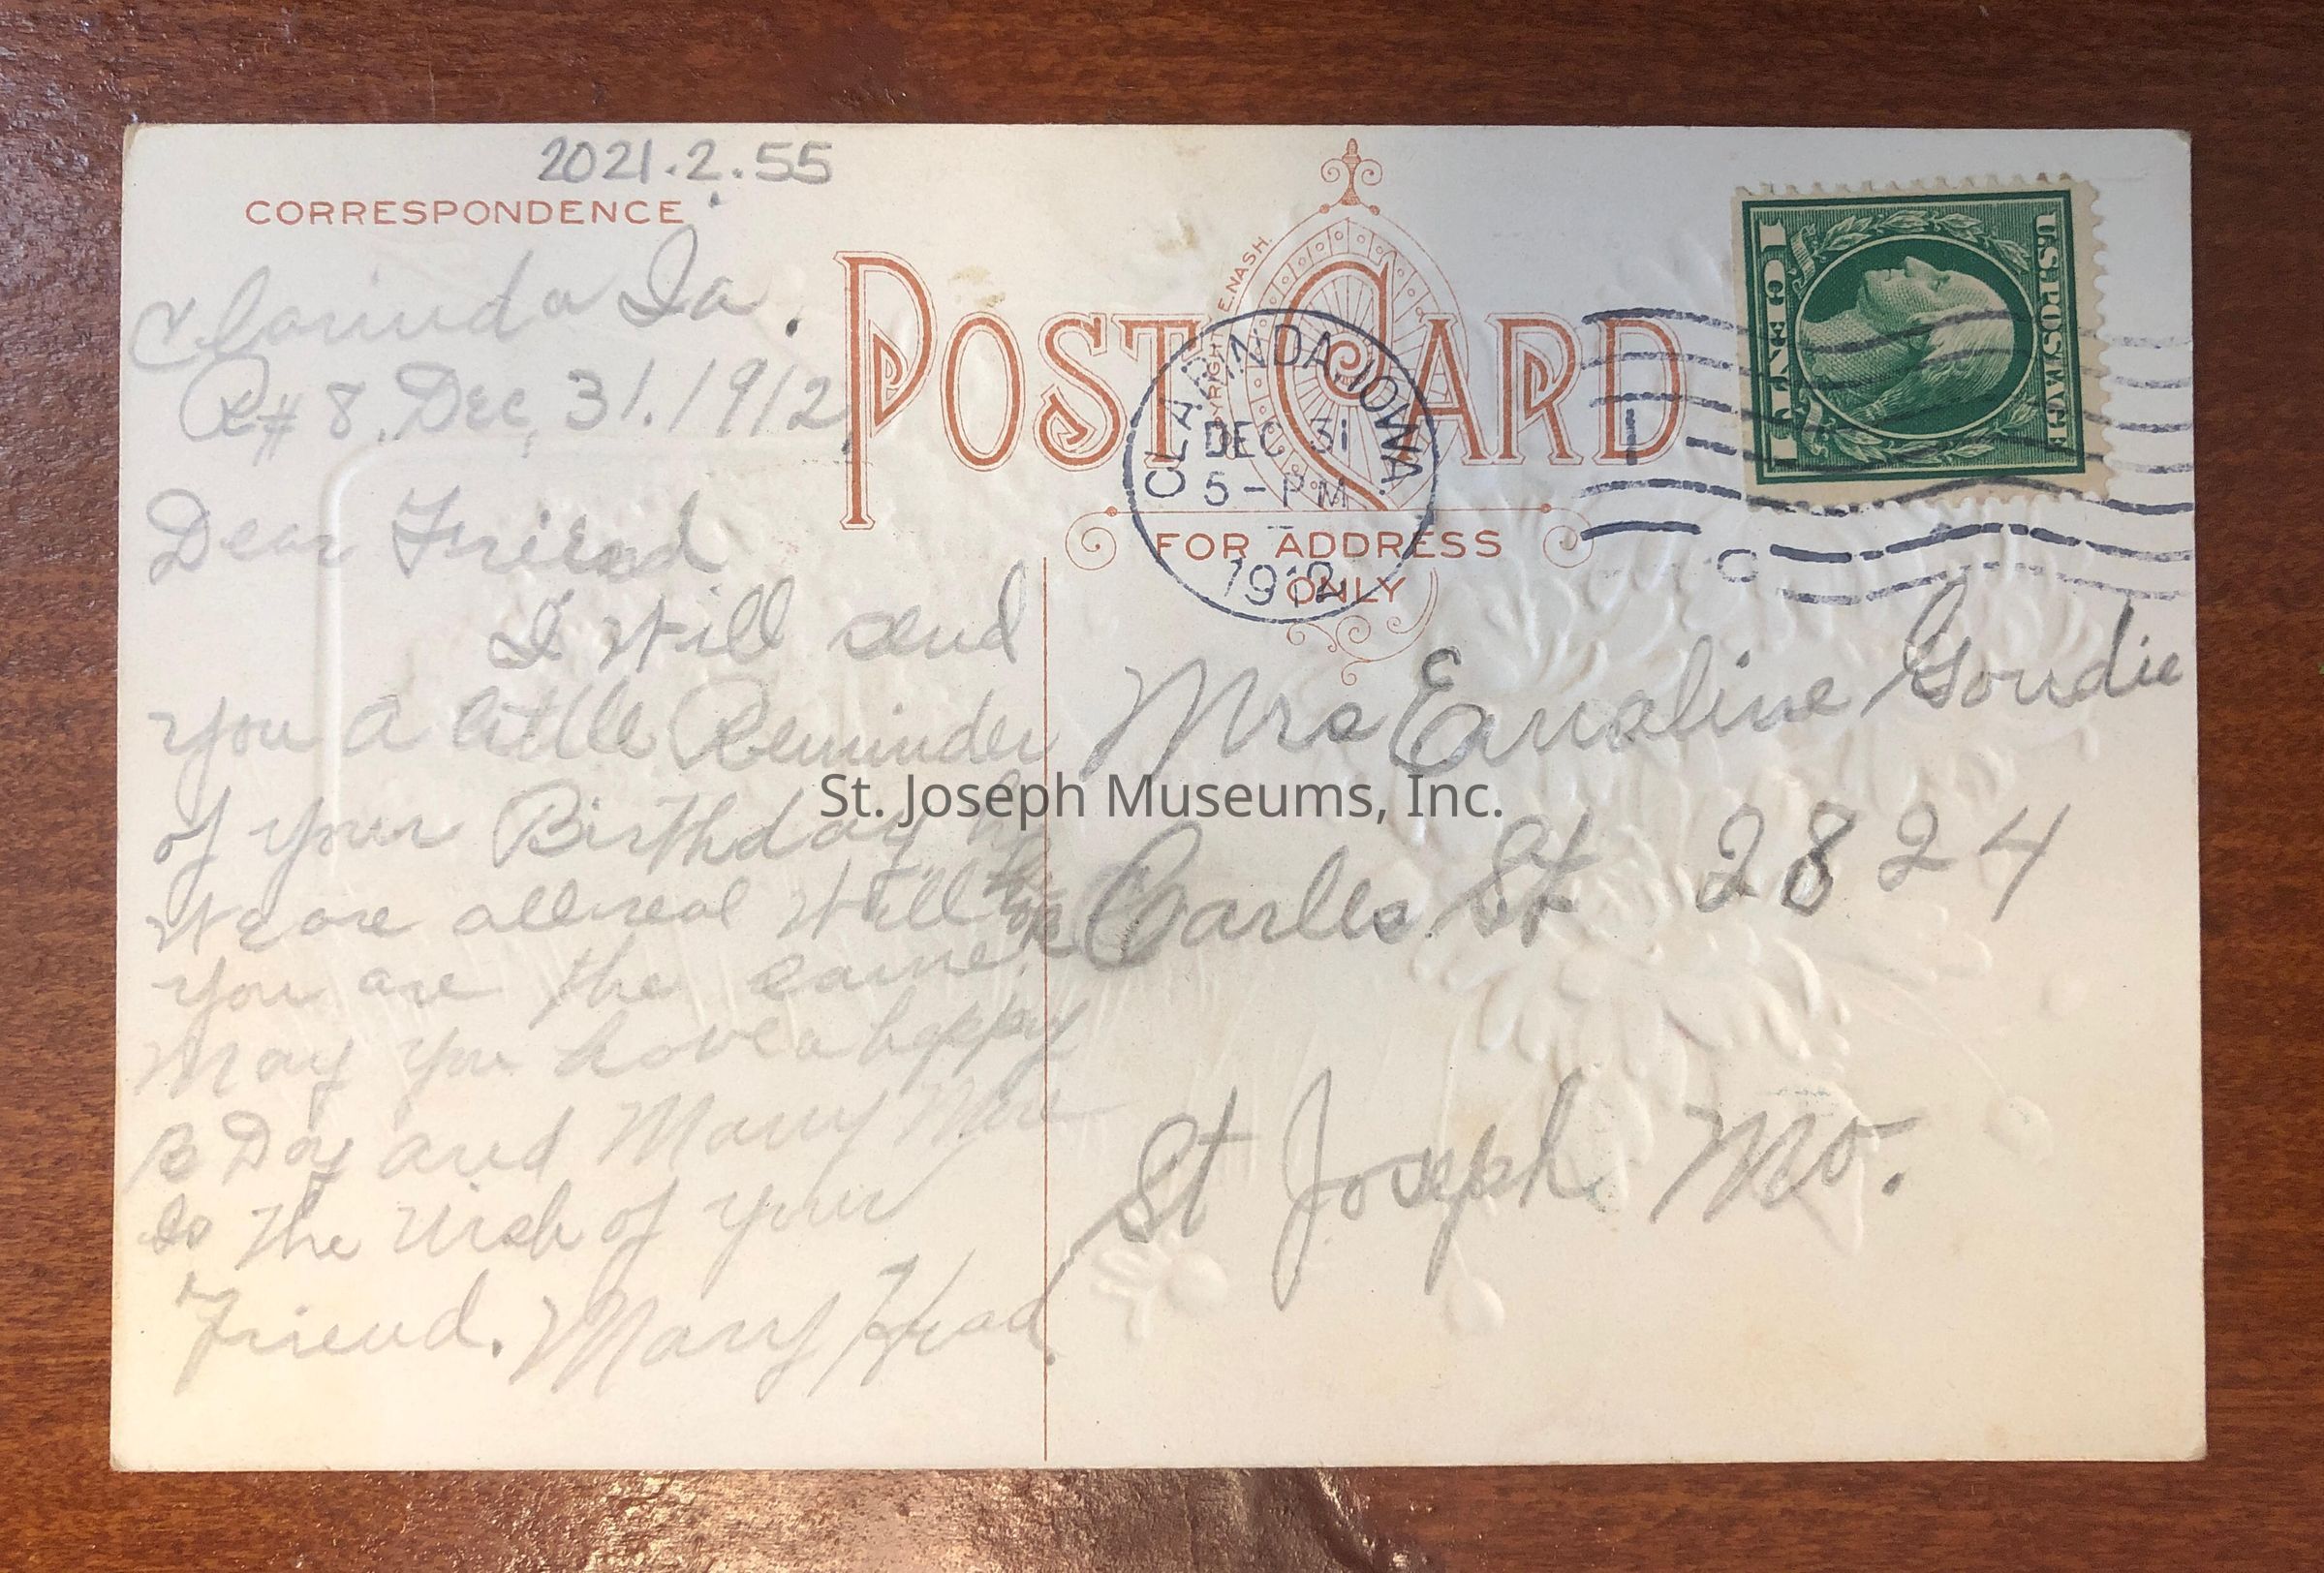 2021.2.55
CORRESPONDENCE
Clarinda Ia.
R# 8. Dec, 31. 1912.
Dear Friend
I Will send
you a little Reminder
of your Birthday
We are all real Well hope
you are the same.
May you have a happy
B Day and Many More
Is the Wish of your
Friend. Mary Head.
POST CARD
COPYRIGHT E. NASH.
FOR ADDRESS
ONLY
CLARINDA, IOWA.
DEC 31
5-PM
1912
U.S. POSTAGE
1 CENT 1
Mrs Emaline Goudie
Carles St 2824
St Joseph Mo.
St. Joseph Museums, Inc.